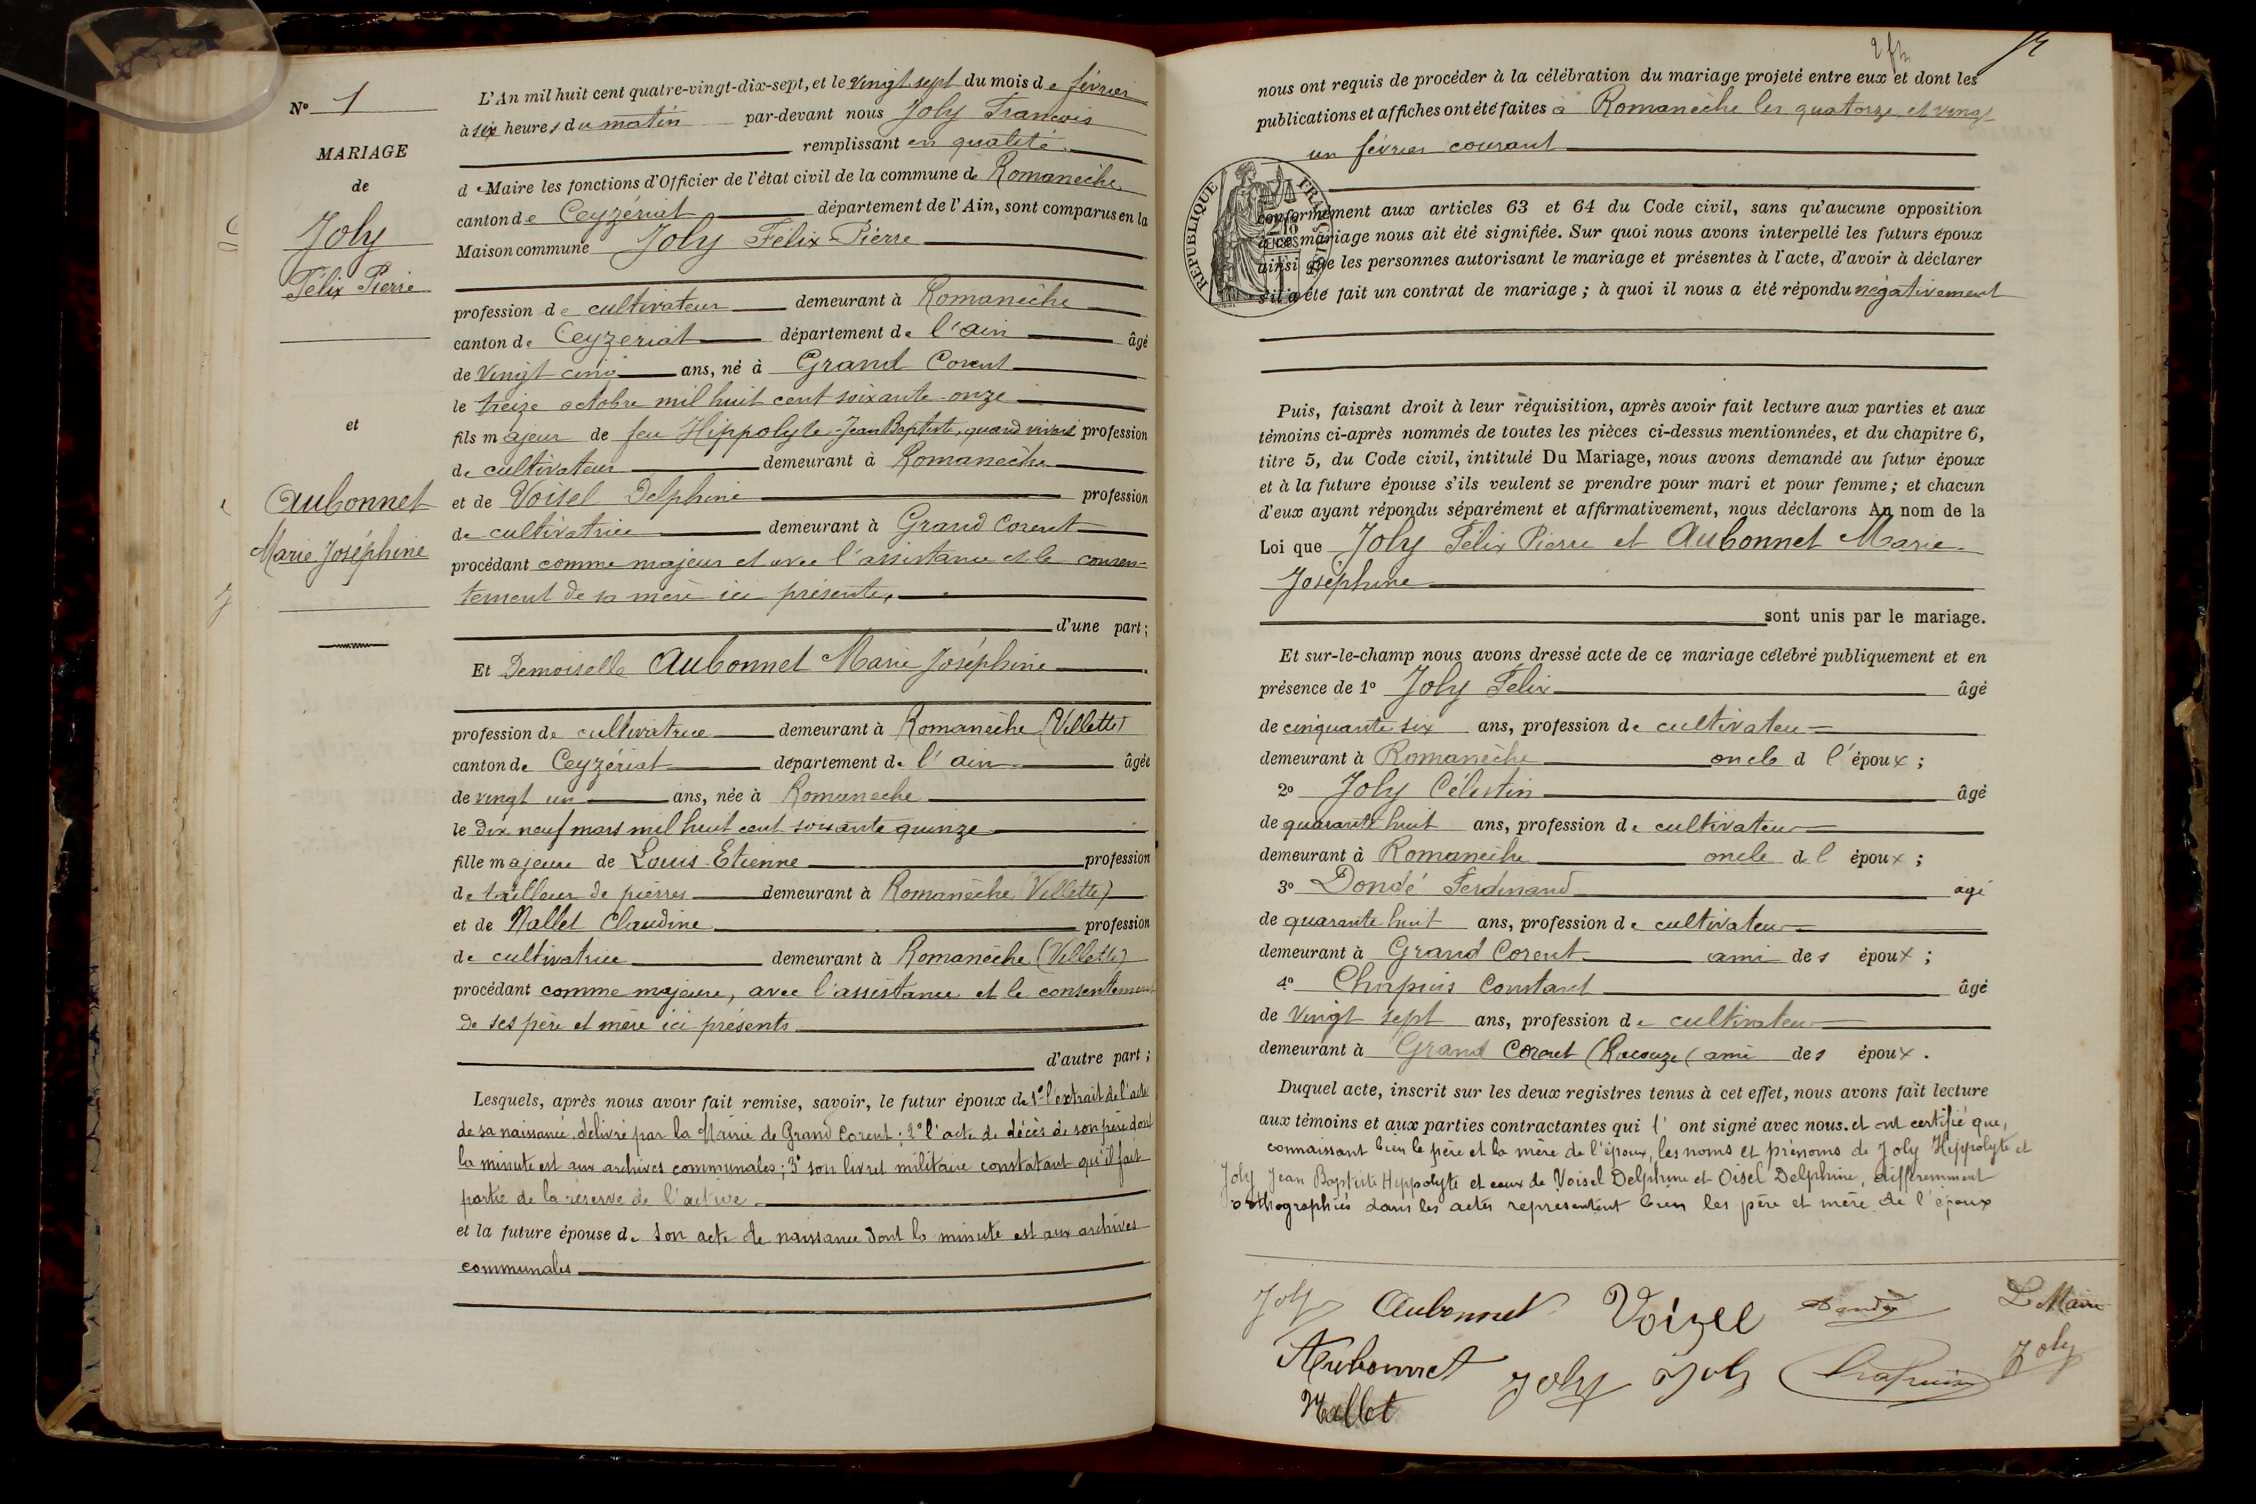 N° 1
MARIAGE
de
Joly
Félix Pierre
et
Aubonnet
Marie Joséphine
L'An mil huit cent quatre-vingt-dix-sept, et le vingt sept du mois de février
à six heures du matin par-devant nous Joly Francois
remplissant en qualité
de Maire les fonctions d'Officier de l'état civil de la commune de Romanèche
canton de Ceyzériat département de l'Ain, sont comparus en la
Maison commune Joly Félix-Pierre
profession de cultivateur demeurant à Romanèche
canton de Ceyzeriat département de l'ain âgé
de vingt cinq ans, né à Grand Corent
le treize octobre mil huit cent soixante-onze
fils majeur de feu Hippolyte-Jean Baptiste, quand vivait profession
de cultivateur demeurant à Romanèche
et de Voisel Delphine profession
de cultivatrice demeurant à Grand Corent
procédant comme majeur et avec l'assistance et le consen-
tement de sa mère ici présente,
d'une part;
Et Demoiselle Aubonnet Marie Joséphine
profession de cultivatrice demeurant à Romanèche (Villette)
canton de Ceyzériat département de l'ain âgée
de vingt un ans, née à Romaneche
le dix neuf mars mil huit cent soixante quinze
fille majeure de Louis-Etienne profession
de tailleur de pierres demeurant à Romanèche (Villette)
et de Nallet Claudine profession
de cultivatrice demeurant à Romanèche (Villette)
procédant comme majeure, avec l'assistance et le consentement
de ses père et mère ici présents
d'autre part;
Lesquels, après nous avoir fait remise, savoir, le futur époux de 1° l'extrait de l'acte
de sa naissance délivré par la Mairie de Grand Corent; 2° l'acte de décès de son père dont
la minute est aux archives communales; 3° son livret militaire constatant qu'il fait
partie de la réserve de l'active
et la future épouse de son acte de naissance dont la minute est aux archives
communales
nous ont requis de procéder à la célébration du mariage projeté entre eux et dont les
publications et affiches ont été faites à Romanèche les quatorze et vingt
un février courant
RÉPUBLIQUE FRANÇAISE
conformément aux articles 63 et 64 du Code civil, sans qu'aucune opposition
à ce mariage nous ait été signifiée. Sur quoi nous avons interpellé les futurs époux
ainsi que les personnes autorisant le mariage et présentes à l'acte, d'avoir à déclarer
s'il a été fait un contrat de mariage; à quoi il nous a été répondu négativement
Puis, faisant droit à leur réquisition, après avoir fait lecture aux parties et aux
témoins ci-après nommés de toutes les pièces ci-dessus mentionnées, et du chapitre 6,
titre 5, du Code civil, intitulé Du Mariage, nous avons demandé au futur époux
et à la future épouse s'ils veulent se prendre pour mari et pour femme; et chacun
d'eux ayant répondu séparément et affirmativement, nous déclarons Au nom de la
Loi que Joly Félix Pierre et Aubonnet Marie-
Joséphine
sont unis par le mariage.
Et sur-le-champ nous avons dressé acte de ce mariage célébré publiquement et en
présence de 1° Joly Félix âgé
de cinquante six ans, profession de cultivateur
demeurant à Romanèche oncle de l'époux;
2° Joly Célestin âgé
de quarante huit ans, profession de cultivateur
demeurant à Romanèche oncle de l époux;
3° Dondé Ferdinand âgé
de quarante huit ans, profession de cultivateur
demeurant à Grand Corent ami des époux;
4° Chapuis Constant âgé
de vingt sept ans, profession de cultivateur
demeurant à Grand Corent (Racouze( ami des époux.
Duquel acte, inscrit sur les deux registres tenus à cet effet, nous avons fait lecture
aux témoins et aux parties contractantes qui l'ont signé avec nous. et ont certifié que,
connaissant bien le père et la mère de l'époux, les noms et prénoms de Joly Hippolyte et
Joly Jean Baptiste Hippolyte et ceux de Voisel Delphine et Oisel Delphine, différemment
orthographiés dans les actes representent bien les père et mère de l'époux
Joly Aubonnet Voizel Dondé Le Maire
Aubonnet Joly Joly Chapuis Joly
Nallet